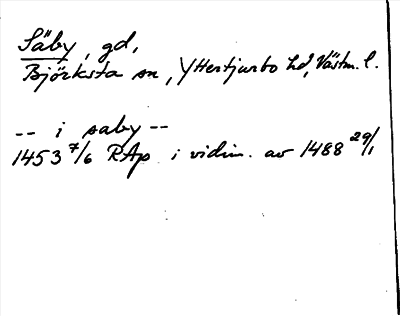 Säby, gd,
Björksta sn, Yttertjurbo hd, Västm. l.
-- i saby --
1453 7/6 RAp i vidim. av 1488 29/1